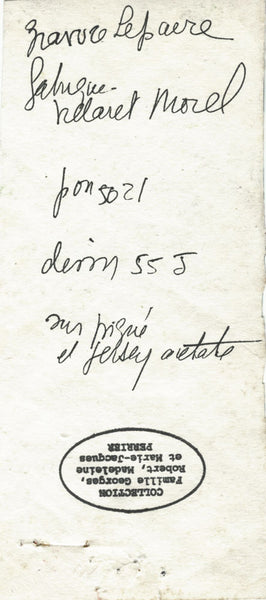 gravure Lepavre
Fabrique
Velaret Morel
pon 5021
dessin 55 J
sur piqué
et Jersey acetate
COLLECTION
Famille Georges,
Robert, Madeleine
et Marie-Jacques
PERRIER